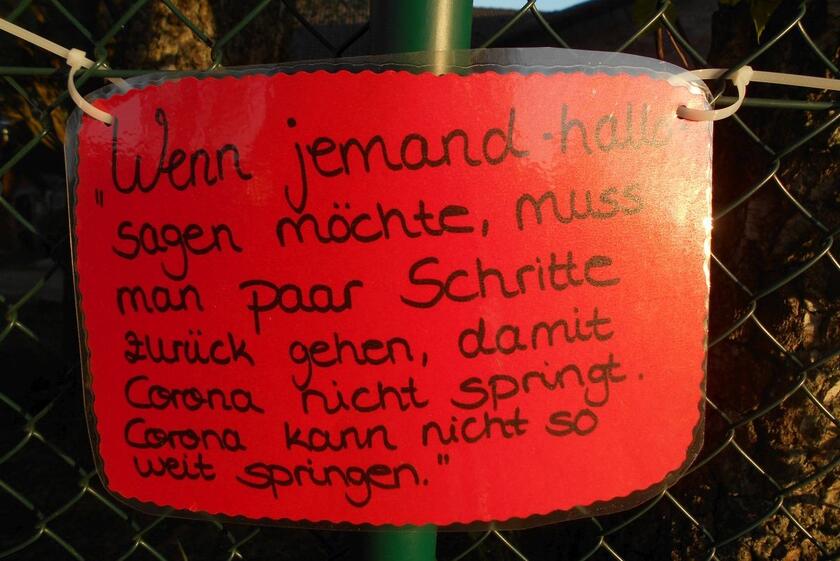 "Wenn jemand hallo
sagen möchte, muss
man paar Schritte
zurück gehen, damit
Corona nicht springt.
Corona kann nicht so
weit springen."